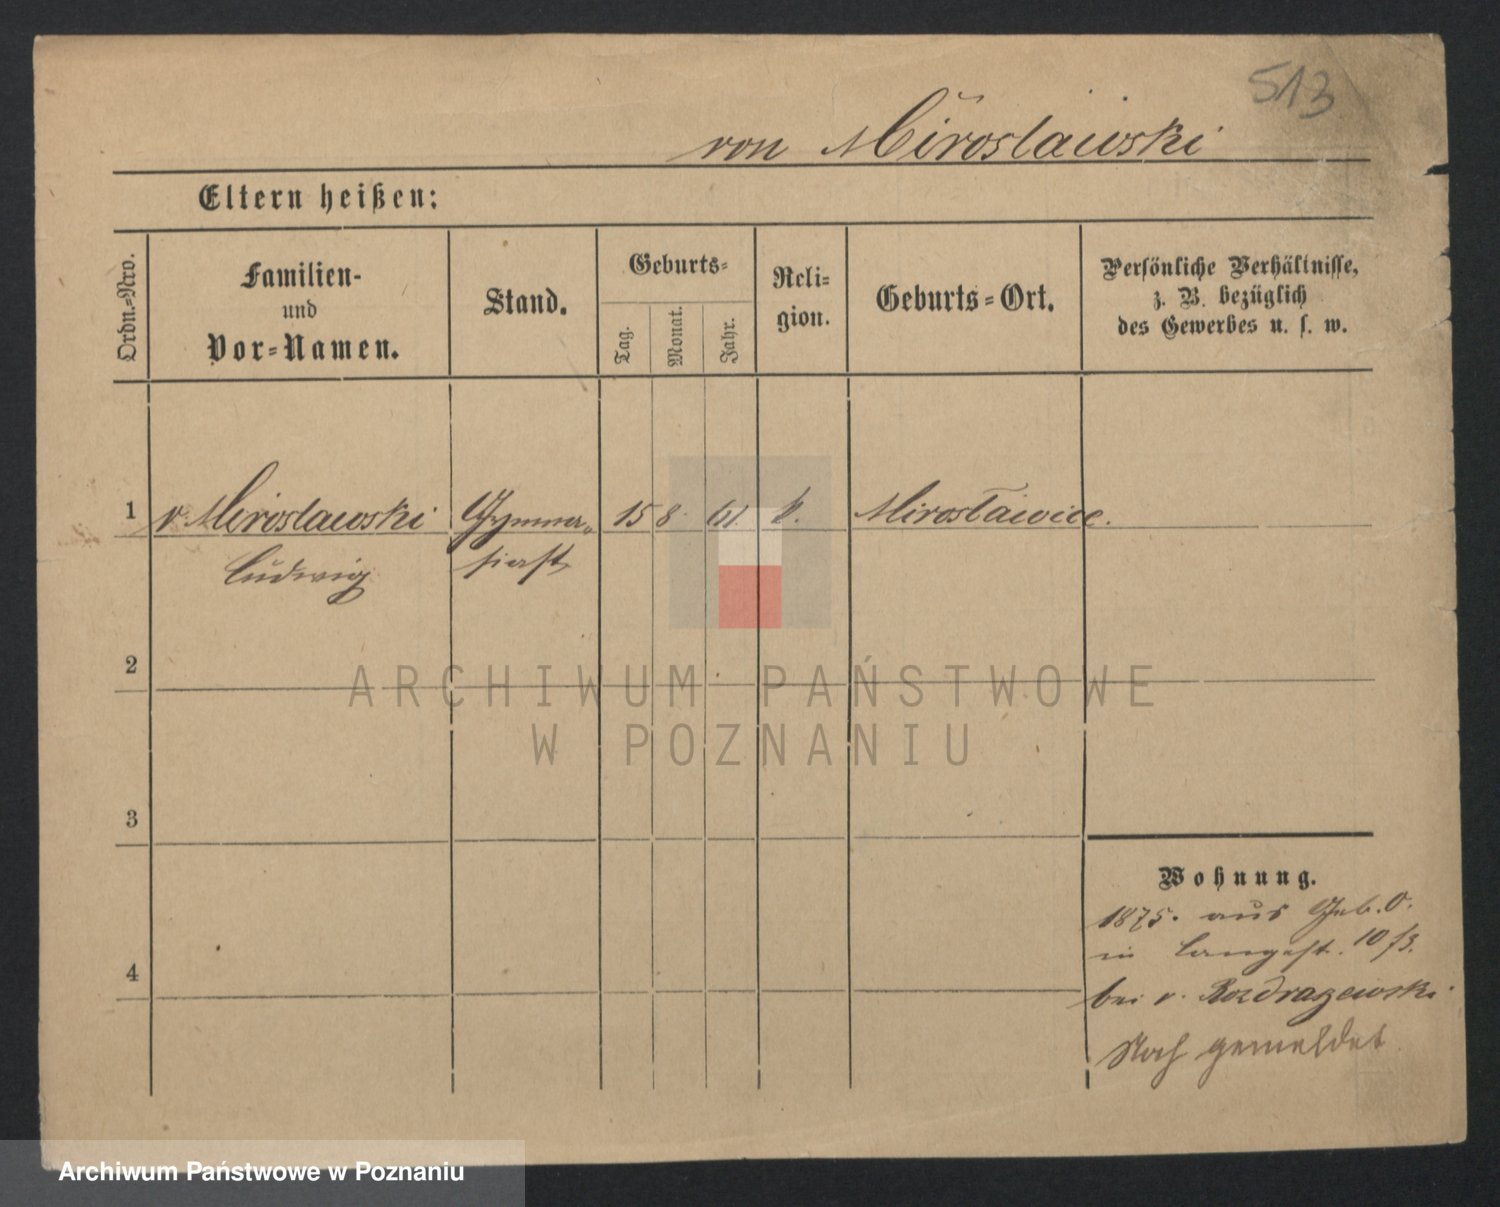 513
von Mirosławski
Eltern heißen:
Ordn.-Nro.
Familien-
und
Vor-Namen.
Stand.
Geburts-
Tag.
Monat.
Jahr.
Reli-
gion.
Geburts-Ort.
Persönliche Verhältnisse,
z. B. bezüglich
des Gewerbes u. s. w.
1 v. Miroslawski Gymna- 15 8 61 k. Mirosławice.
Ludwig siast
2
3
4
Wohnung.
1875. aus Geb. O.
in Langestr. 10/3.
bei v. Rozdrazewski
Noch gemeldet
ARCHIWUM PAŃSTWOWE
W POZNANIU
Archiwum Państwowe w Poznaniu